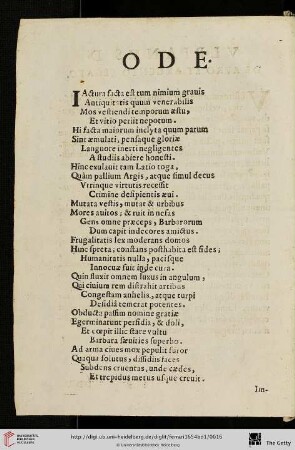 ODE.
IActura facta est tum nimium grauis
Antiquitatis quum venerabilis
Mos vestiendi temporum æstu,
Et vitio periit nepotum.
Hi facta maiorum inclyta quum parum
Sint æmulati, pensaque gloriæ
Languore inerti negligentes
A studiis abiere honesti.
Hinc exulauit tam Latio toga,
Quàm pallium Argis, atque simul decus
Vtrinque virtutis recessit
Crimine desipientis æui.
Mutata vestis, mutat & vrbibus
Mores auitos; & ruit in nefas
Gens omne præceps, Barbarorum
Dum capit indecores amictus.
Frugalitatis lex moderans domos
Hinc spreta; constans posthabita est fides;
Humanitatis nulla, pacisque
Innocuæ fuit inde cura.
Quin fluxit omnem luxus in angulum,
Qui ciuium rem distrahit artibus
Congestam anhelis, atque turpi
Desidiâ temerat potentes.
Obducta passim nomine gratiæ
Egerminarunt perfidia, & doli,
Et cœpit illic stare vultu
Barbara sæuities superbo.
Ad arma ciues mox pepulit furor
Quaqua solutus, dissidiis faces
Subdens cruentas, unde cædes,
Et trepidus metus usque creuit.
Im-
http://digi.ub.uni-heidelberg.de/diglit/ferrari1654bd1/0016
© Universitätsbibliothek Heidelberg
The Getty